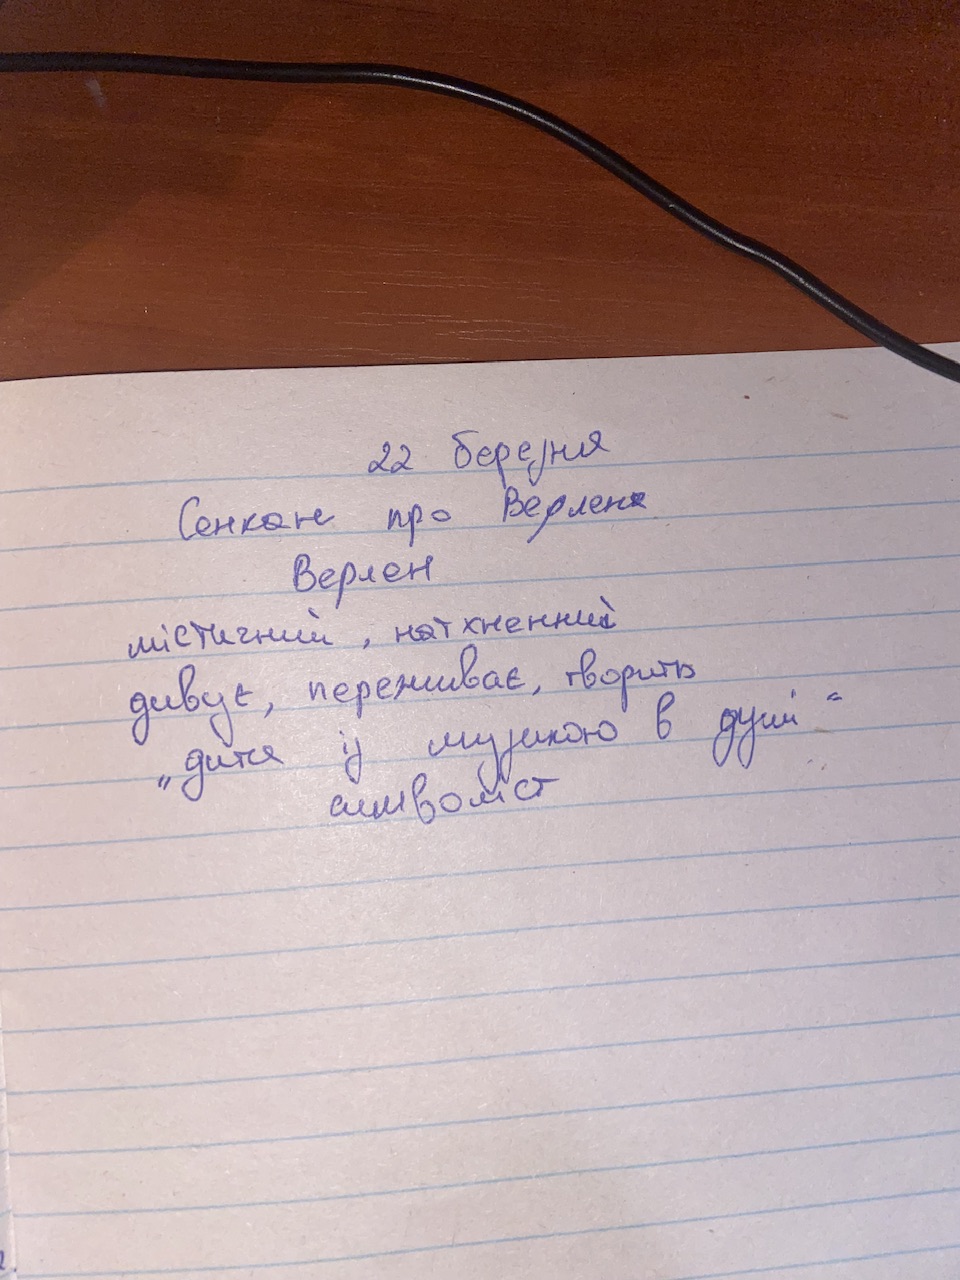 22 березня
Сенкан про Верлена
Верлен
містичний, натхненний
дивує, переживає, творить
„дитя із музикою в душі“
символіст